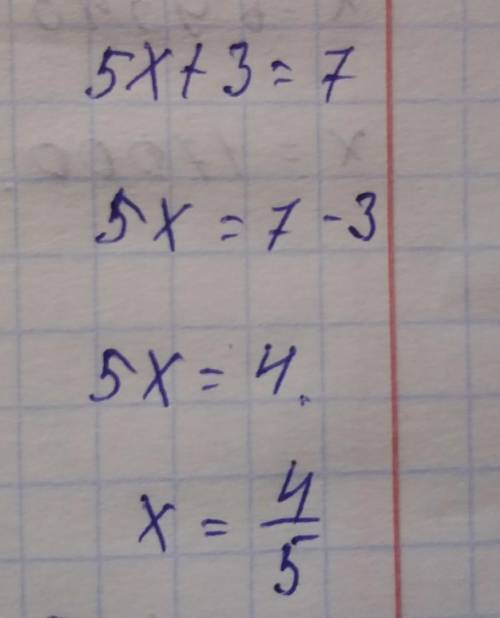 5x+3=7
5x=7-3
5x=4.
x=4/5